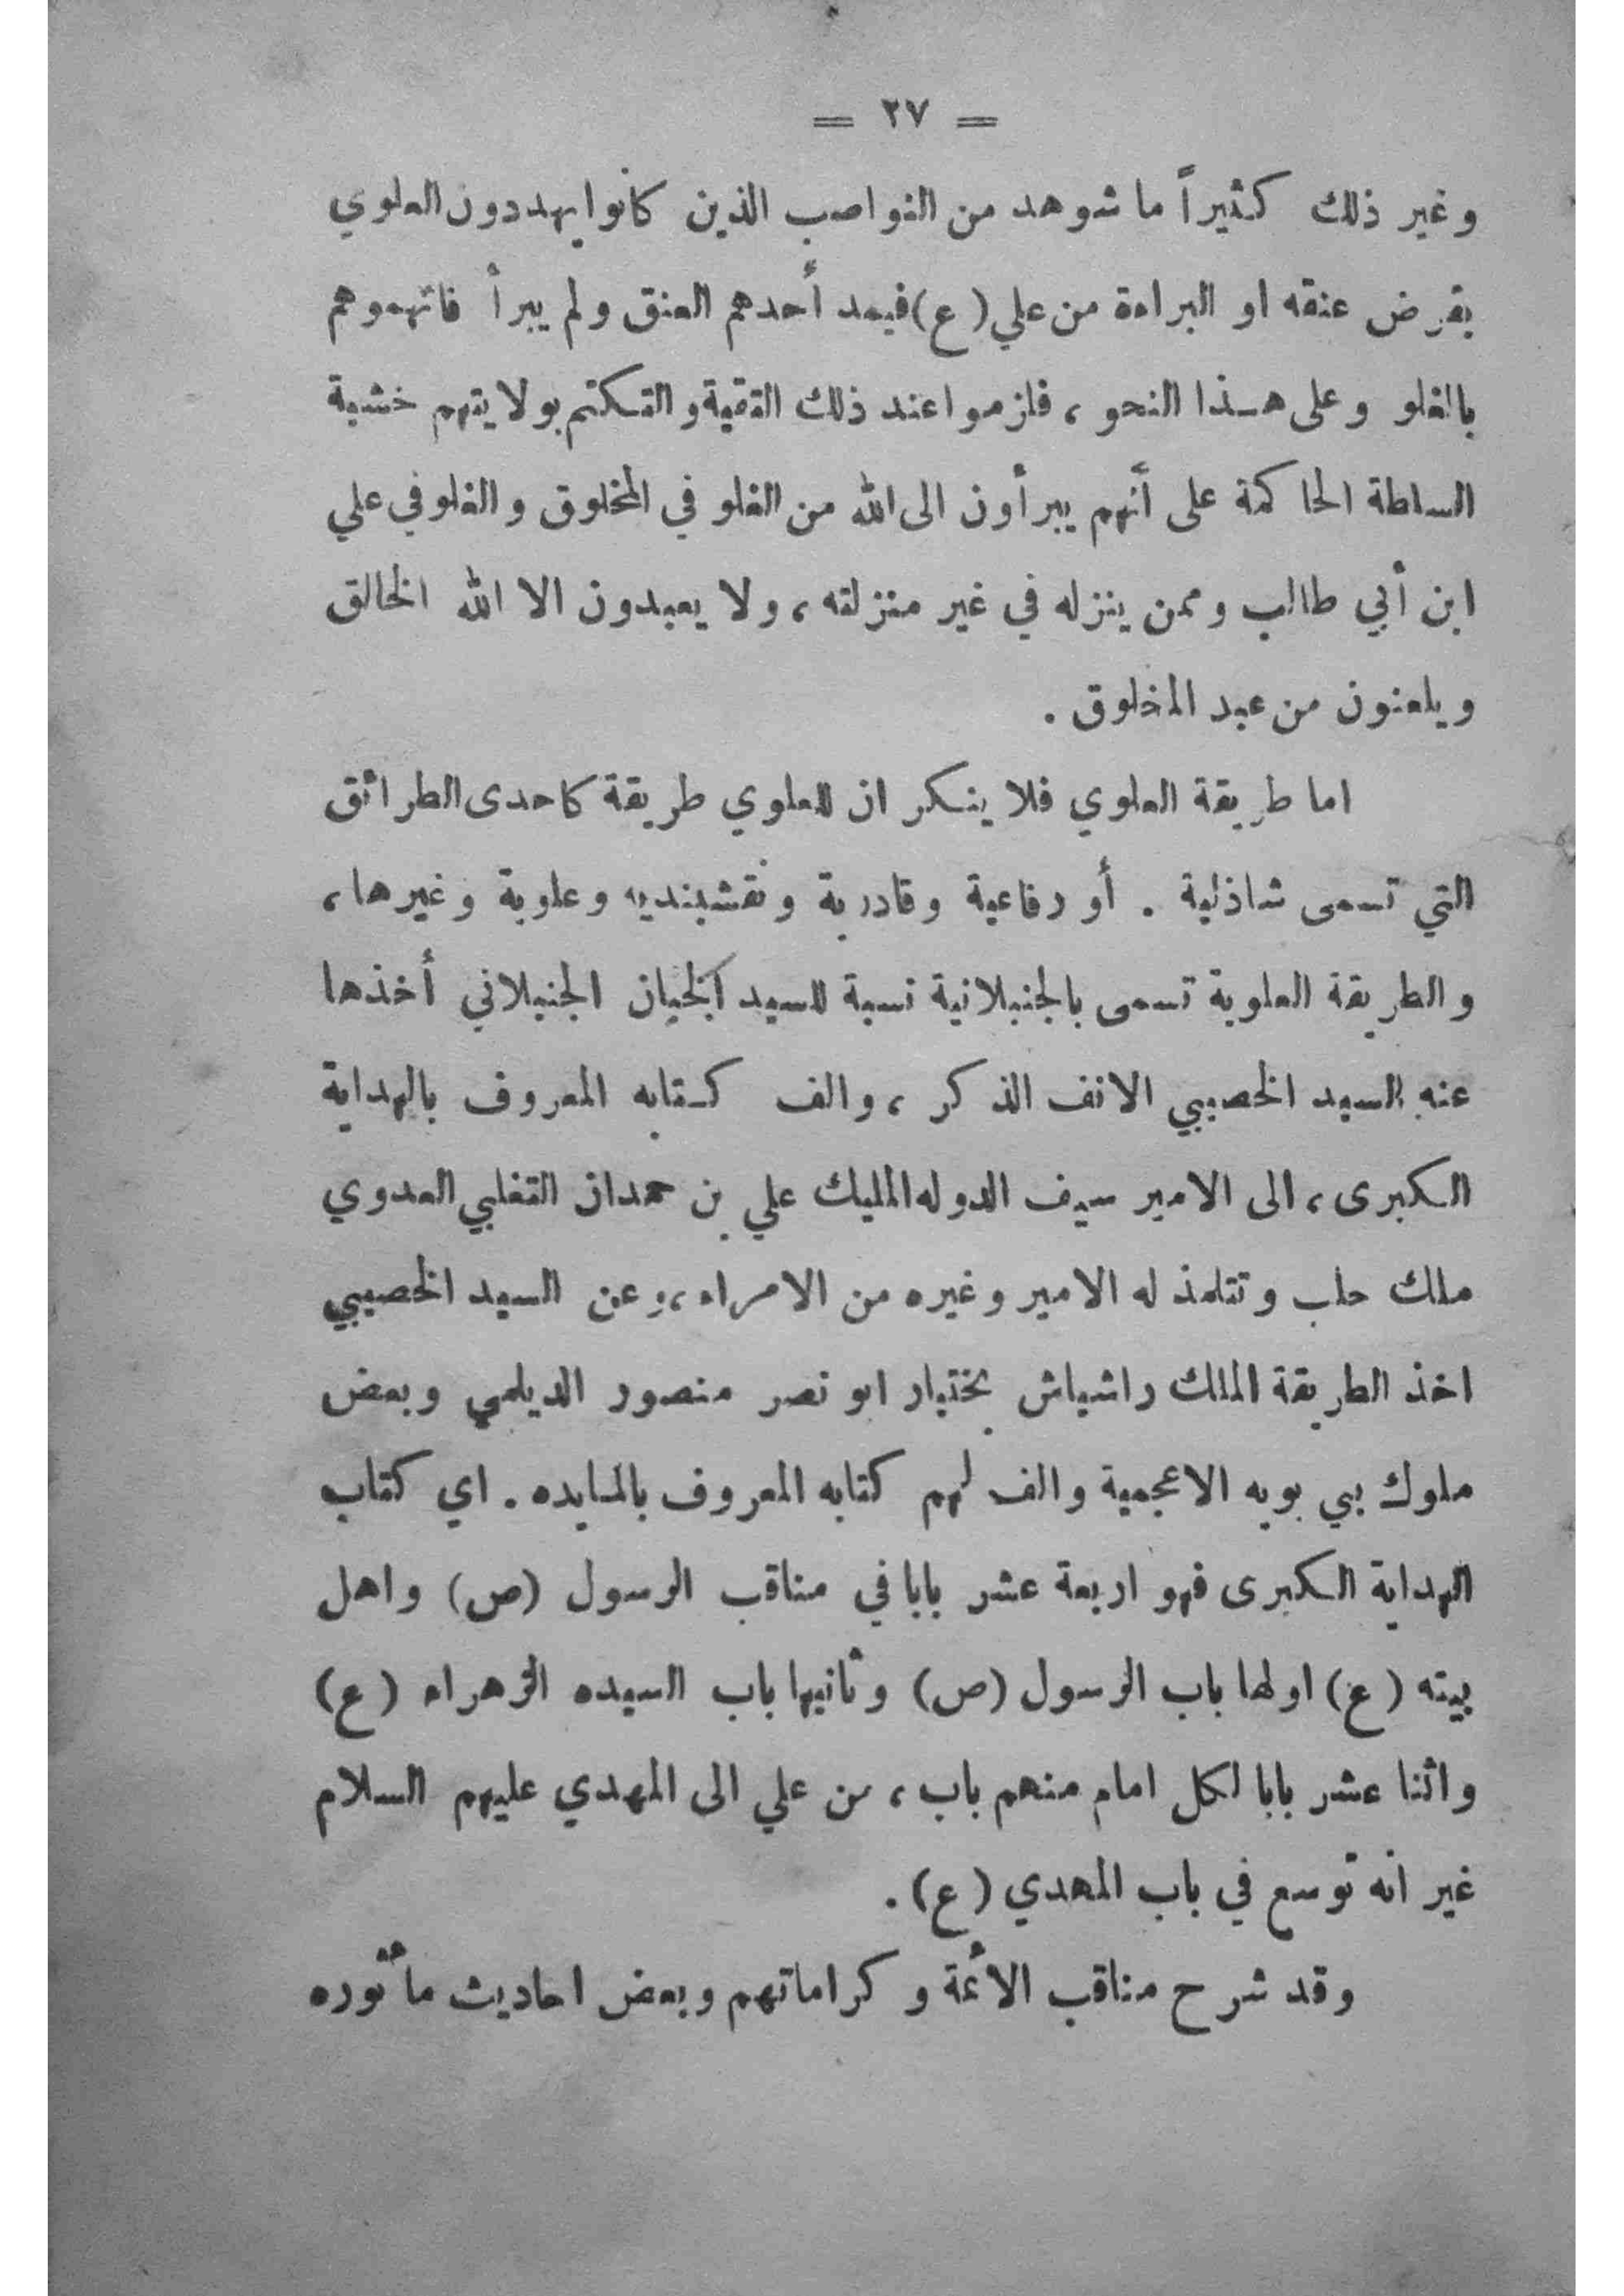 = ٢٧ =
وغير ذلك كثيراً ما شوهد من النواصب الذين كانوا يهددون العلوي
بقرض عنقه او البراءة من علي (ع) فيمد أحدهم العنق ولم يبرأ فاتهموهم
بالغلو وعلى هـذا النحو ، فلزموا عند ذلك التقية والتكتم بولايتهم خشية
السلطة الحاكمة على أنهم يبرأون الى الله من الغلو في المخلوق والغلو في علي
ابن أبي طالب وممن ينزله في غير منزلته ، ولا يعبدون الا الله الخالق
ويلعنون من عبد المخلوق .
اما طريقة العلوي فلا ينكر ان للعلوي طريقة كاحدى الطرائق
التي تسمى شاذلية . أو رفاعية وقادرية ونقشبنديه وعلوية وغيرها ،
والطريقة العلوية تسمى بالجنبلانية نسبة للسيد الجنان الجنبلاني أخذها
عنه السيد الخصيبي الانف الذكر ، والف كـتابه المعروف بالهداية
الكبرى ، الى الامير سيف الدوله المليك علي بن حمدان التغلبي العدوي
ملك حلب وتتلمذ له الامير وغيره من الامراء ، وعن السيد الخصيبي
اخذ الطريقة الملك راشباش بختيار ابو نصر منصور الديلمي وبعض
ملوك بي بويه الاعجمية والف لهم كتابه المعروف بالمايده . اي كتاب
الهداية الكبرى فهو اربعة عشر بابا في مناقب الرسول (ص) واهل
بيته (ع) اولها باب الرسول (ص) وثانيها باب السيده الزهراء (ع)
واثنا عشر بابا لكل امام منهم باب ، من علي الى المهدي عليهم السلام
غير انه توسع في باب المهدي (ع) .
وقد شرح مناقب الائمة وكراماتهم وبعض احاديث مأثوره